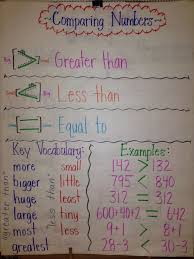 Comparing Numbers
Big > Greater than
Small < Less than
= Equal to
Key Vocabulary:
more small
bigger little
huge less
large tiny
most less
greatest
"greater than"
"less than"
Examples:
142 > 132
795 < 840
312 = 312
600+40+2 = 642
9+1 > 8+1
28-3 < 30-3